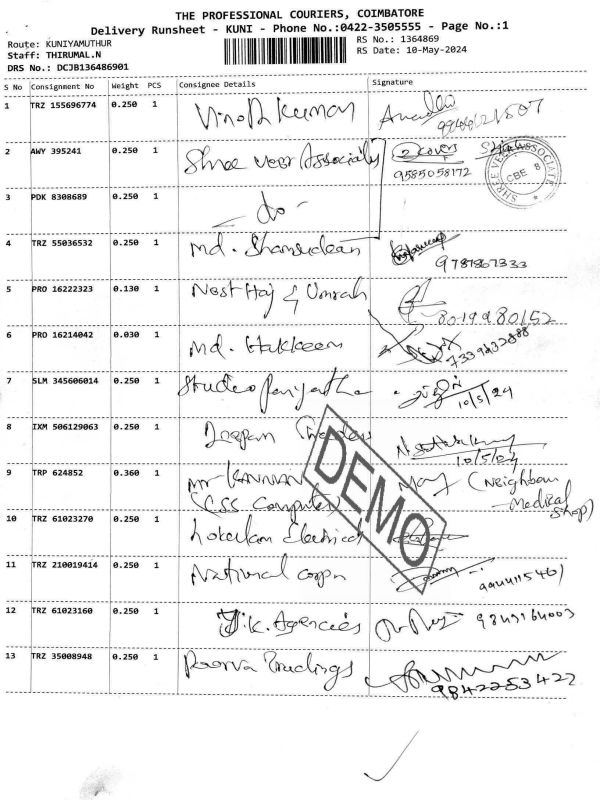 THE PROFESSIONAL COURIERS, COIMBATORE
Delivery Runsheet - KUNI - Phone No.:0422-3505555 - Page No.:1
Route: KUNIYAMUTHUR
RS No.: 1364869
Staff: THIRUMAL.N
RS Date: 10-May-2024
DRS No.: DCJB136486901
S No Consignment No Weight PCS Consignee Details Signature
1 TRZ 155696774 0.250 1 Vinoth kumar
2 AWY 395241 0.250 1 Shree veer Associates 2 covers
9585058172
SHREE VEER ASSOCIATE
CBE 8
3 PDK 8308689 0.250 1 - do -
4 TRZ 55036532 0.250 1 Md. Shamsudeen
9787867333
5 PRO 16222323 0.130 1 Nest Haj & Umrah
8019980152
6 PRO 16214042 0.030 1 Md. Hakkeem
7339232888
7 SLM 345606014 0.250 1 Studeo
10/5/24
8 IXM 506129063 0.250 1 Deepam Traders
10/5/24
9 TRP 624852 0.360 1 mr Kannan (Neighbour
CSS Computer Medical shop)
10 TRZ 61023270 0.250 1 Lokesh Electrical
11 TRZ 210019414 0.250 1 National corpn
9944115461
12 TRZ 61023160 0.250 1 J.K. Agencies 9843164003
13 TRZ 35008948 0.250 1 Poorva Tradings
9842253422
DEMO